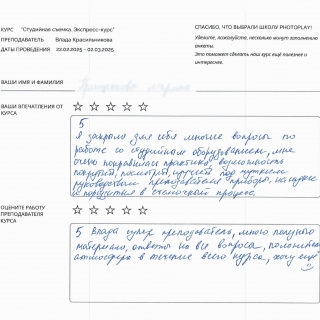 КУРС "Студийная съемка. Экспресс-курс"
ПРЕПОДАВАТЕЛЬ Влада Красильникова
ДАТЫ ПРОВЕДЕНИЯ 22.02.2025 - 02.03.2025
СПАСИБО, ЧТО ВЫБРАЛИ ШКОЛУ PHOTOPLAY!
Уделите, пожалуйста, несколько минут заполнению анкеты.
Это поможет сделать наш курс ещё полезнее и интереснее.
ВАШИ ИМЯ И ФАМИЛИЯ
ВАШИ ВПЕЧАТЛЕНИЯ ОТ КУРСА
5
Я закрыла для себя многие вопросы по
работе со студийным оборудованием, мне
очень понравилась практика, возможность
покрутить, посмотреть, изучить под чутким
руководством преподавателя приборы,
и погрузиться в съемочный процесс.
ОЦЕНИТЕ РАБОТУ ПРЕПОДАВАТЕЛЯ КУРСА
5 Влада супер преподаватель, много полезного
материала, ответы на все вопросы,
атмосфера в течение всего курса, хочу ещё